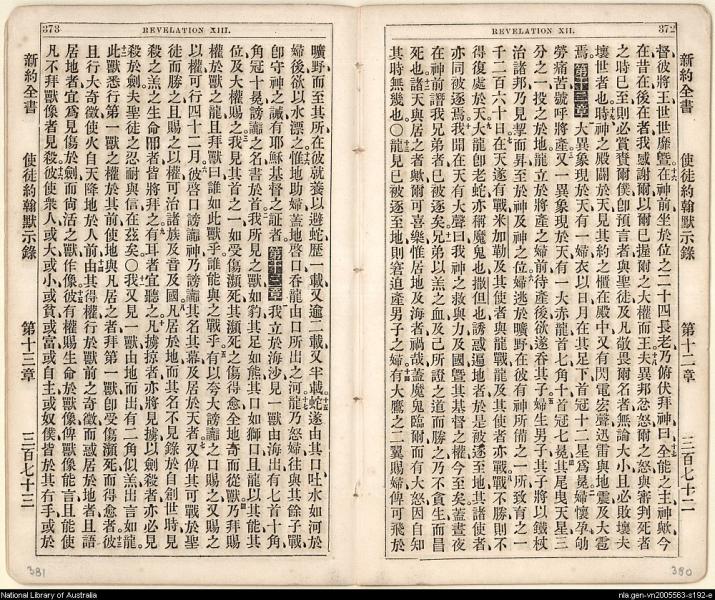 REVELATION XII.
372
新約全書 使徒約翰默示錄 第十二章 三百七十二
督彼將王世世靡曁在神前坐於位之二十四長老乃俯伏拜神曰全能之主神歟今
在昔在後在者我感謝爾以爾已握爾之大權而王夫異邦忿怒爾之怒與審判死者
之時已至則必賞賚爾僕卽預言者與聖徒及凡敬畏爾名者無論大小且必敗壞夫
壞世者也時神之殿闢於天見其約之櫃在殿中又有閃電宏聲迅雷與地震及大雹
焉第十二章大異象現於天有一婦衣以日月在其足下首冠十二星爲冕婦懷孕劬
勞痛苦號呼將產又一異象現於天有一大赤龍首七角十首冠七冕其尾曳天星三
分之一投之於地龍立於將產之婦前待產後欲遂吞其子婦生男子其子將以鐵杖
治諸邦乃見挈而昇至於神及神之位婦逃於曠野在彼有神所備之一所致育之一
千二百六十日在天遂有戰米加勒及其使者與龍戰龍及其使者亦戰戰不勝則不
得復處於天大龍卽老蛇亦稱魔鬼也撒但也誘惑遍地者於是被逐至地其諸使者
亦同被逐焉我聞在天有大聲曰我神之救與力及國曁其基督之權今至矣蓋晝夜
在神前譖我兄弟者已被逐矣兄弟以羔之血及己所證之道而勝之乃不貪生而畏
死也諸天與居之者歟爾可喜樂惟居地及海者禍哉蓋魔鬼臨爾而有大怒因自知
其時無幾也〇龍見已被逐至地則窘迫產男子之婦有大鷹之二翼賜婦俾可飛於
380
373
REVELATION XIII.
曠野而至其所在彼就養以避蛇歷一載又逾二載又半載蛇遂由其口吐水如河於
婦後欲以水漂之惟地助婦蓋地啓口吞龍由口所出之河龍乃怒婦往與其餘子戰
卽守神之誡有耶穌基督之証者第十三章我立於海沙見一獸由海出有七首十角
角冠十冕謗讟之名書於首我所見之獸如豹其足如熊其口如獅口且龍以其能其
位及大權賜之我見其首之一如受傷瀕死其瀕死之傷得愈全地奇而從獸乃拜賜
權於獸之龍且拜獸曰誰如此獸乎誰能與之戰乎有以夸大謗讟之口賜之又賜之
以權可行四十二月彼啓口謗讟神乃謗讟其名其幕及居於天者又俾其可戰於聖
徒而勝之且賜之以權可治諸族及音及國凡居於地而其名不見錄於自創世時見
殺之羔之生命冊者皆將拜之有耳者宜聽之凡擄掠者亦將見擄以劍殺者亦必見
殺於劍夫聖徒之忍耐與信在茲矣〇我又見一獸由地而出有二角似羔出言如龍
此獸悉行第一獸之權於其前使地與凡居之者拜第一獸卽受傷瀕死而得愈者彼
且行大奇徵使火自天降地於人前由其得權行於獸前之奇徵而惑居於地者且語
居地者宜爲見傷於劍而尙活之獸作像彼有權賜生命於獸像俾獸像能言且能使
凡不拜獸像者見殺彼使衆人或大或小或貧或富或自主或奴僕皆於其右手或於
新約全書 使徒約翰默示錄 第十三章 三百七十三
381
National Library of Australia
nla.gen-vn2005563-s192-e